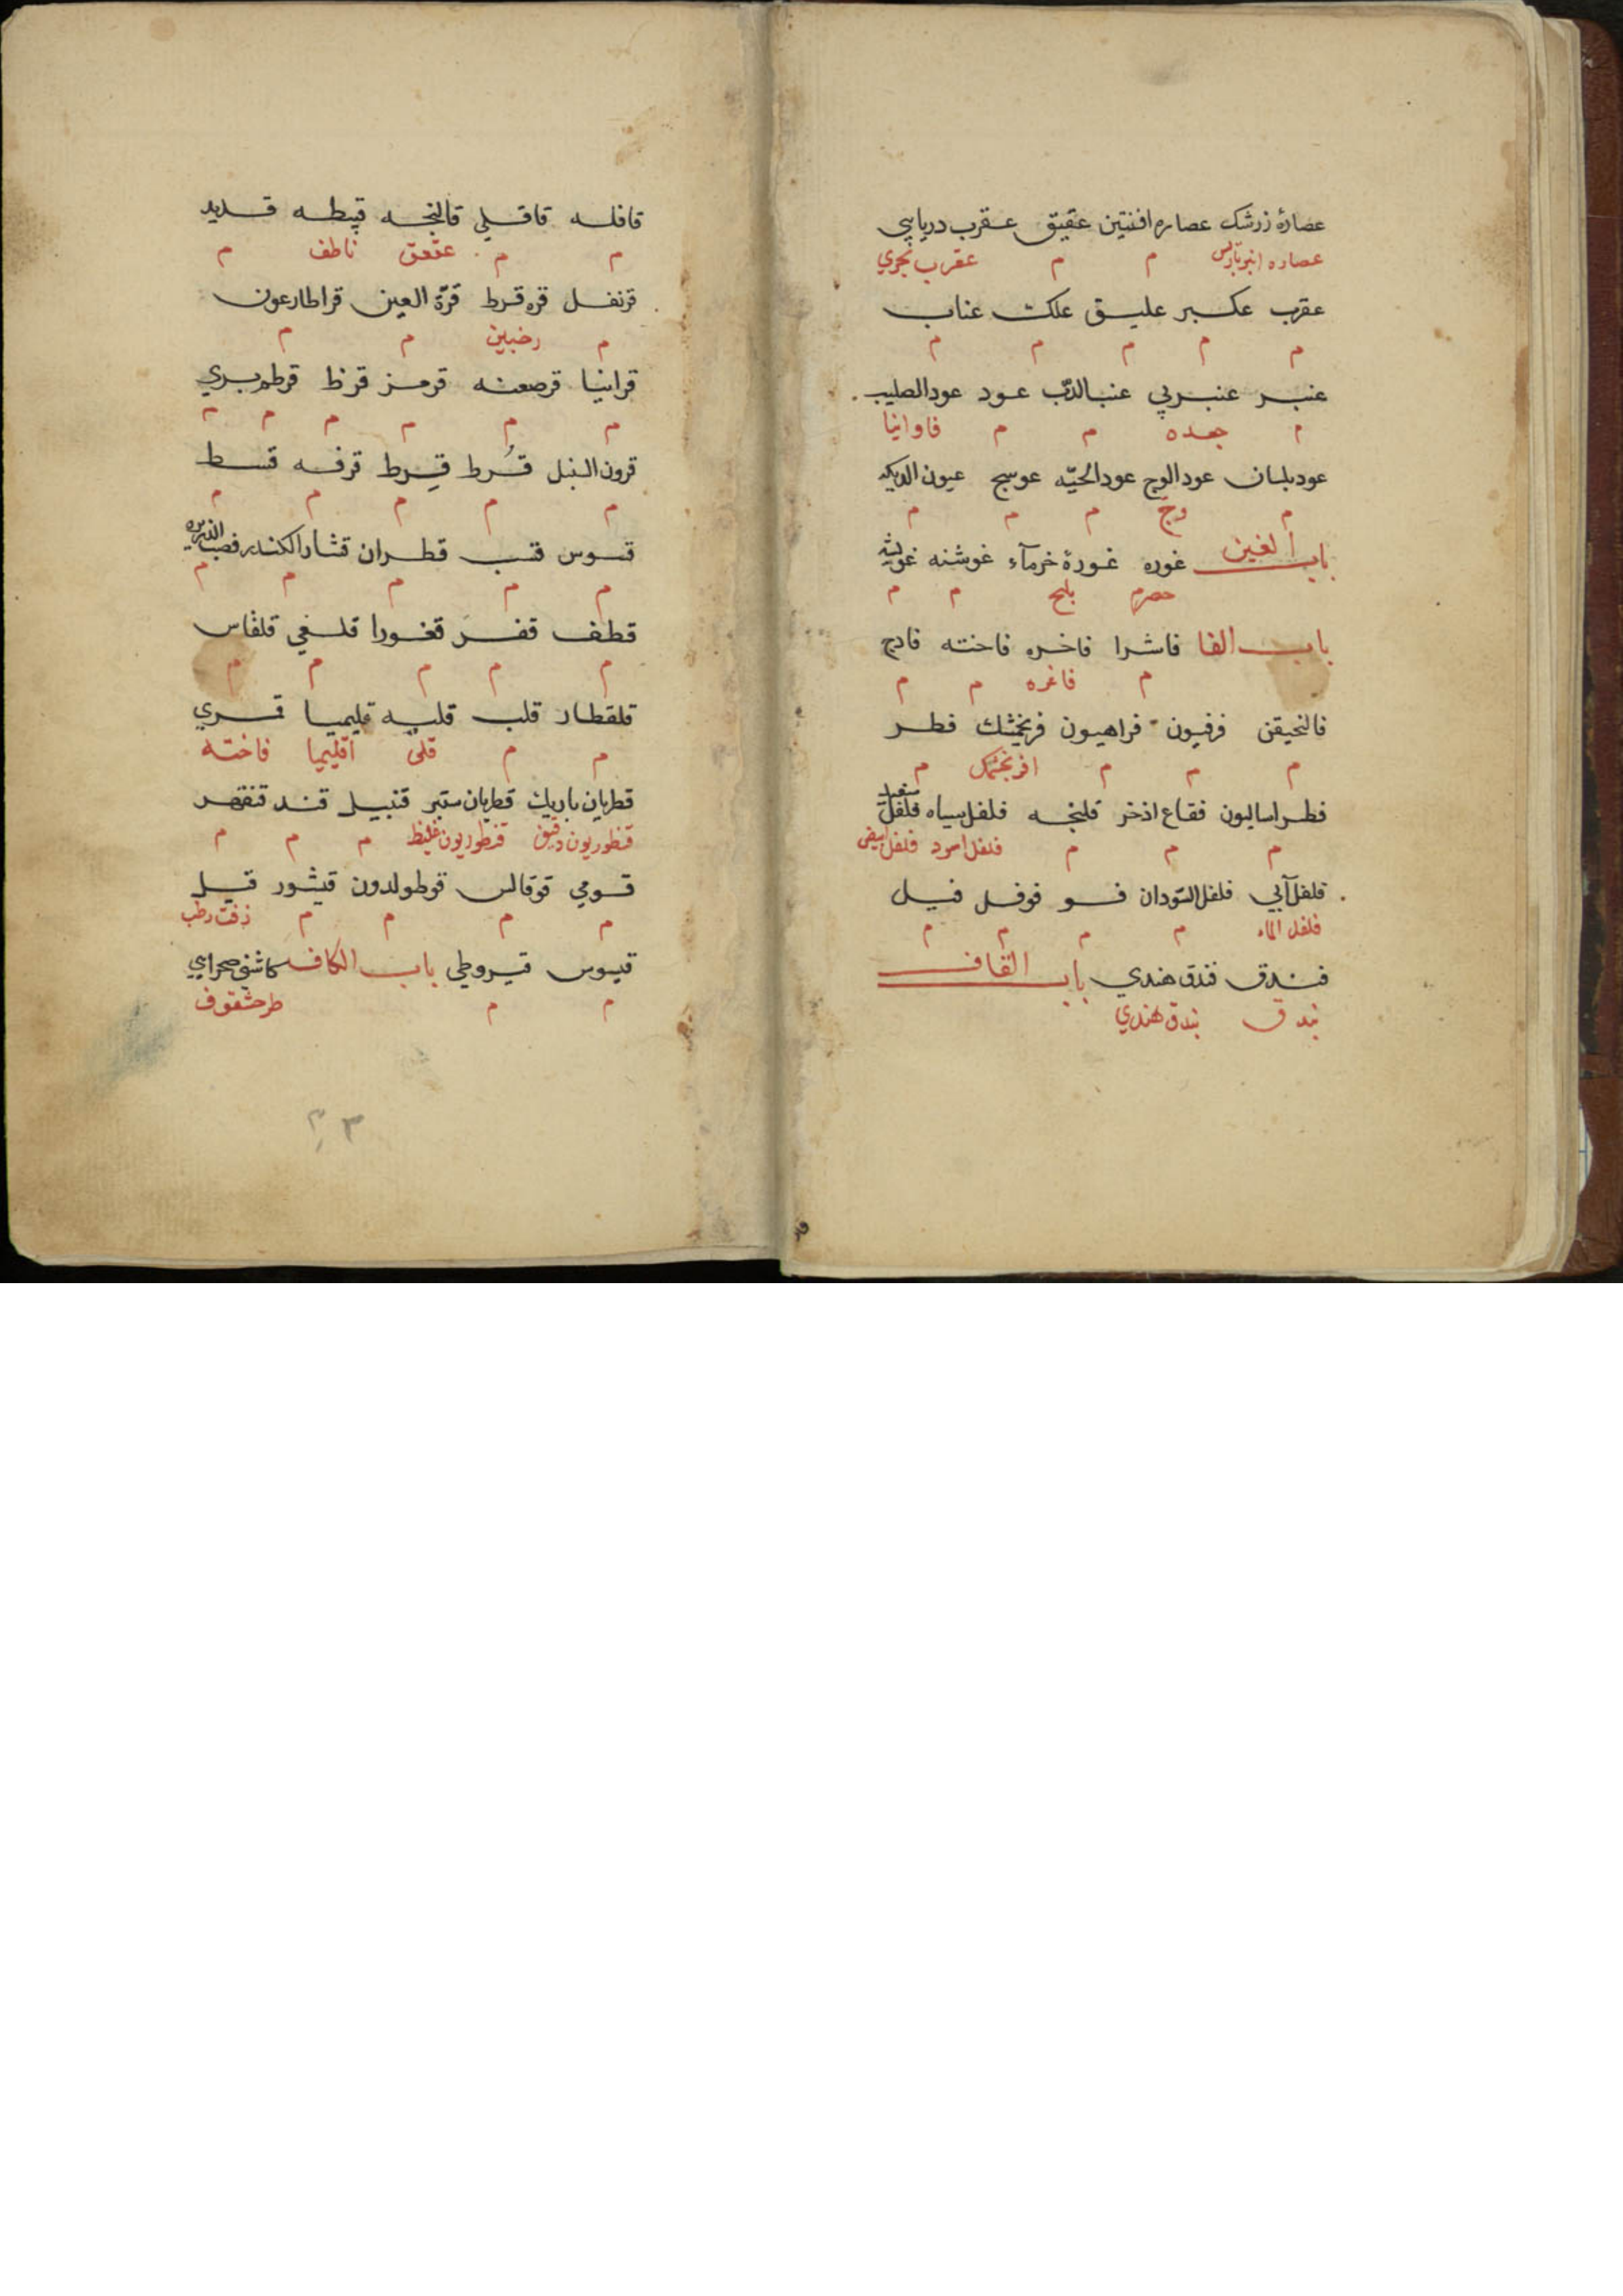 عصارۀ زرشک عصاره افنتین عقیق عقرب دریایی
عصاره انبرباریس م م عقرب بحري
عقرب عکبر علیق علک عناب
م م م م م
عنبر عنبربي عنب الدب عود عود الصلیب
م جعده م م فاوانیا
عود بلسان عود الوج عود الحیّه عوسج عیون الدیکه
م وج م م م
باب الغین غوره غورۀ خرمآء غوشنه
حصرم بلح م م
باب الفا فاشرا فاخره فاخته فادج
م فاغره م م
فالنحیقن فرفیون فراهیون فرنجمشک فطر
م م م افرنجمشک م
فطراسالیون فقاع اذخر فلنجه فلفل سیاه فلفل سفید
م م م فلفل اسود فلفل ابیض
فلفل آبي فلفل السّودان فو فوفل فیل
فلفل الماء م م م م
فندق فندق هندي باب القاف
بندق بندق هندي
قافله قاقلي قالنجه قبیطه قدید
م م عقعق ناطف م
قرنفل قره قرط قرّة العین قراطارعون
م رخبین م م
قرانیا قرصعنه قرمز قرظ قرطم بري
م م م م م م
قرون السنبل قُرط قِرط قرفه قسط
م م م م م
قسوس قنب قطران قشار الکندر قصب الذریره
م م م م م
قطف قفر قغورا قلغي قلقاس
م م م م م
قلقطار قلب قلیه قلیمیا قمري
م م قلی اقلیمیا فاخته
قطریان باریک قطریان ستبر قنبیل قند قنفهر
قنطوریون دقیق قنطوریون غلیظ م م م
قومي قوقالس قوطولدون قیشور قیل
م م م م زفت رطب
قیسوس قیروطي باب الکاف کاشني صحرایي
م م طرحشقوف